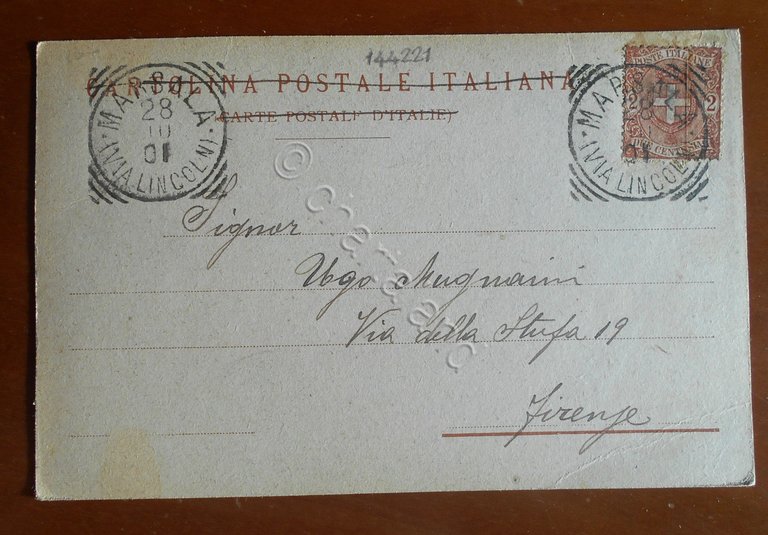 144221
CARTOLINA POSTALE ITALIANA
(CARTE POSTALE D'ITALIE)
MARSALA
28
10
01
(VIA LINCOLN)
POSTE ITALIANE
2 2
DUE CENTESIMI
MAR
01
(VIA LINCOLN)
Signor
Ugo Mugnaini
Via della Stufa 19
Firenze